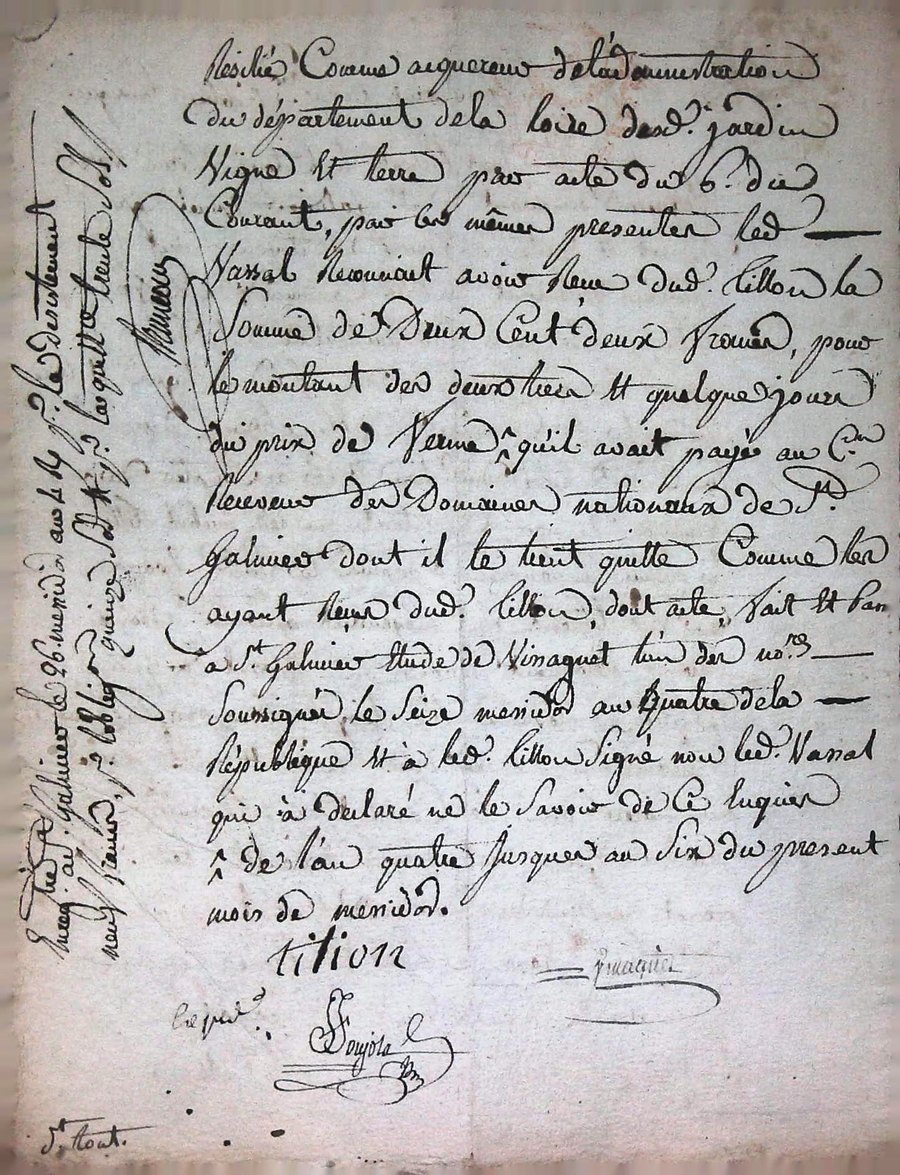 Résilié Comme acquereur de l'administration
du département de la loire desd. jardin
Vigne Et terre par acte du 6. du
Courant, par les mêmes presentes led.
Vassal Reconnait avoir Reçu dud. tillon la
Somme de Deux Cent deux francs, pour
le montant des deux tiers Et quelque jours
du prix de ferme ^ qu'il avait payé au C.en
Receveur des Domaines nationaux de St.
Galmier dont il le tient quitte Comme les
ayant Reçus dud. tillon, dont acte, fait Et
a St. Galmier Etude de l'un des no.res
Soussignés le Seize messidor an quatre de la
République Et à led. tillon Signé non led. Vassal
qui à declaré ne le Savoir de Ce Enquis
^ de l'an quatre Jusques au Six du present
mois de messidor.
tilion
St
Enreg.tré à St. Galmier le 26. messidor an 4 R. le desistement
neuf francs, quinze Sols laquitt.ce trente Sols